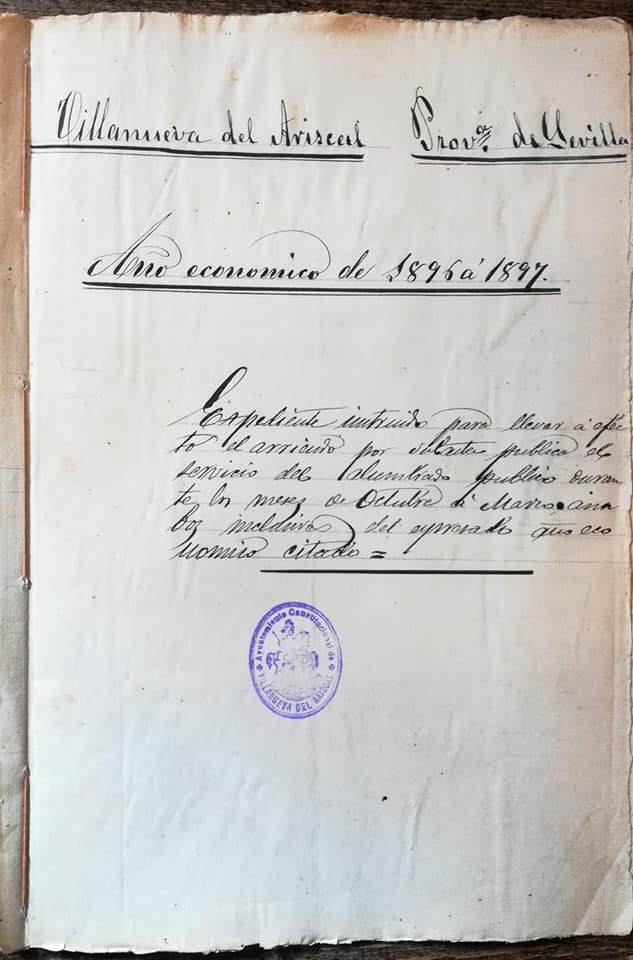 Villanueva del Ariscal Prov.ª de Sevilla
Año economico de 1896 á 1897.
Expediente intruido para llevar á efec
to el arriendo por subasta publica el
servicio del alumbrado publico duran
te los meses de Octubre á Marzo, am
bos inclusives del espresado año eco
nomico citado =
Ayuntamiento Constitucional de
VILLANUEVA DEL ARISCAL